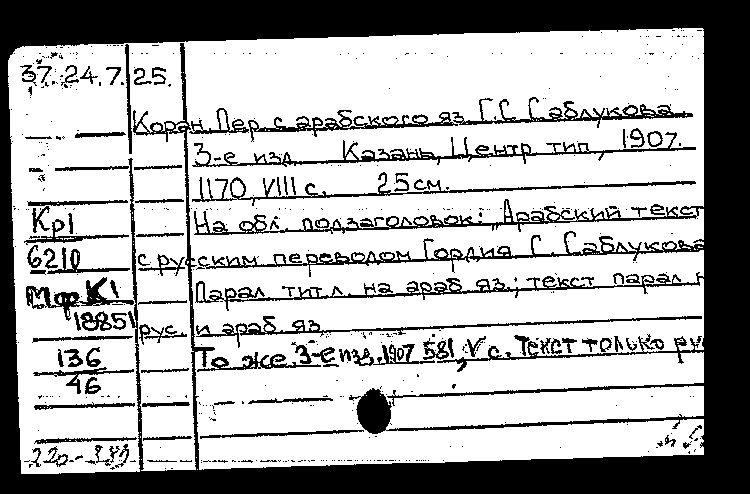 37.24.7.25.
Коран. Пер. с арабского яз. Г.С. Саблукова.
3-е изд. Казань, Центр. тип., 1907.
1170, VIII с. 25 см.
Кр1 На обл. подзаголовок: „Арабский текст
6210 с русским переводом Гордия С. Саблукова
Мф К1 Парал. тит. л. на араб. яз.; текст парал.
18851 рус. и араб. яз.
136 То же. 3-е изд. 1907. 581, V с. Текст только ру
46
220-389